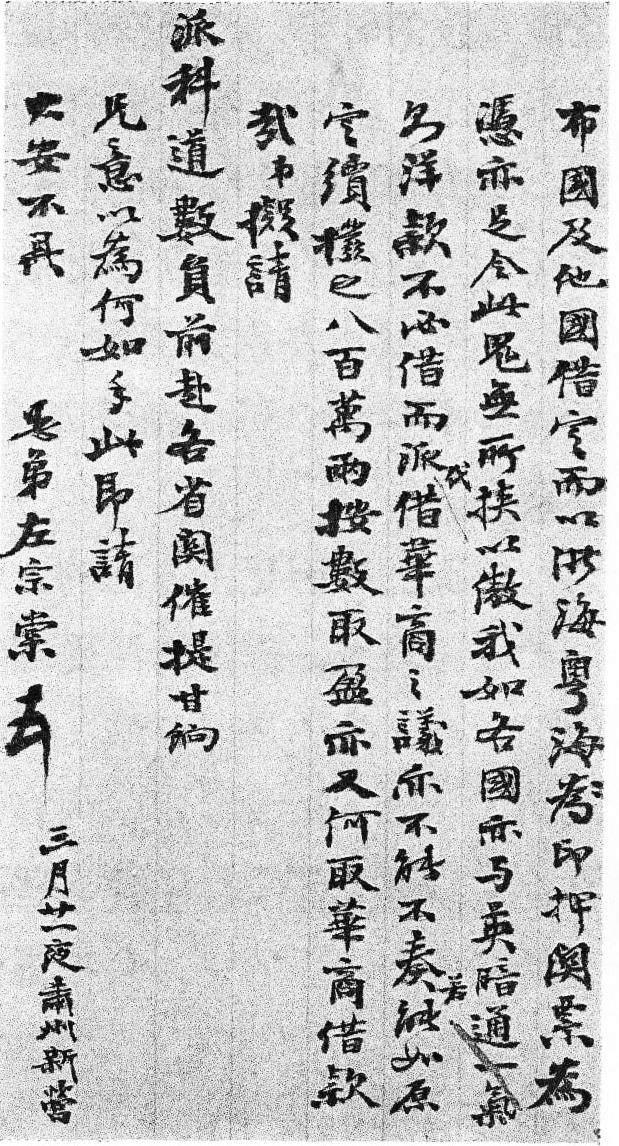 布國及他國借定而以浙海粵海為印押關票為
憑亦足令此鬼無所挾以傲我如各國亦与英暗通一氣
則洋款不必借而派借華商之議亦不能不奏能如原
或
若
定續撥之八百萬兩按數取盈亦又何取華商借款
哉弟擬請
派科道數員前赴各省關催提甘餉
兄意以為何如手此即請
大安不具
愚弟左宗棠頓首
三月廿一夜肅州新營